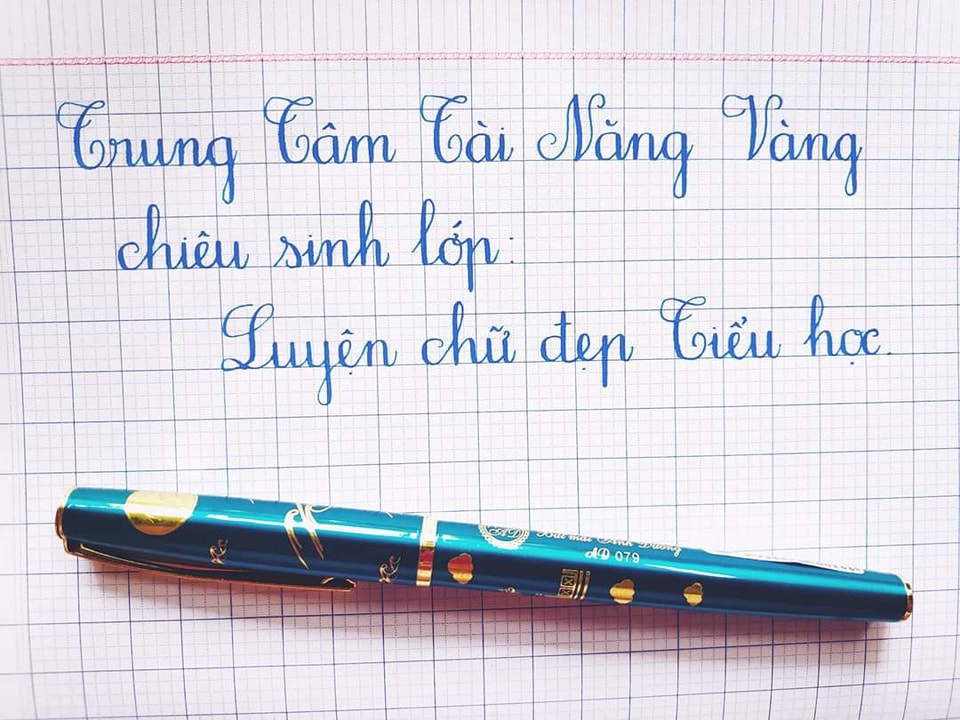 Trung Tâm Tài Năng Vàng
chiêu sinh lớp:
Luyện chữ đẹp Tiểu học.
AD
Bút mài Ánh Dương
AD 079